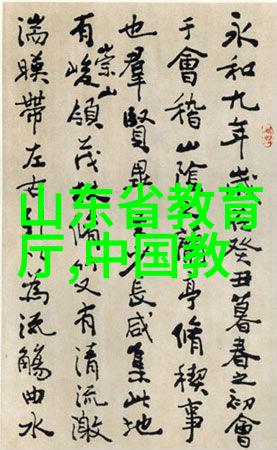 永和九年歲在癸丑暮春之初會
于會稽山陰之蘭亭脩稧事
也羣賢畢至少長咸集此地
有崇山峻領茂林脩竹又有清流激
湍暎帶左右引以為流觴曲水
山东省教育
厅,中国教